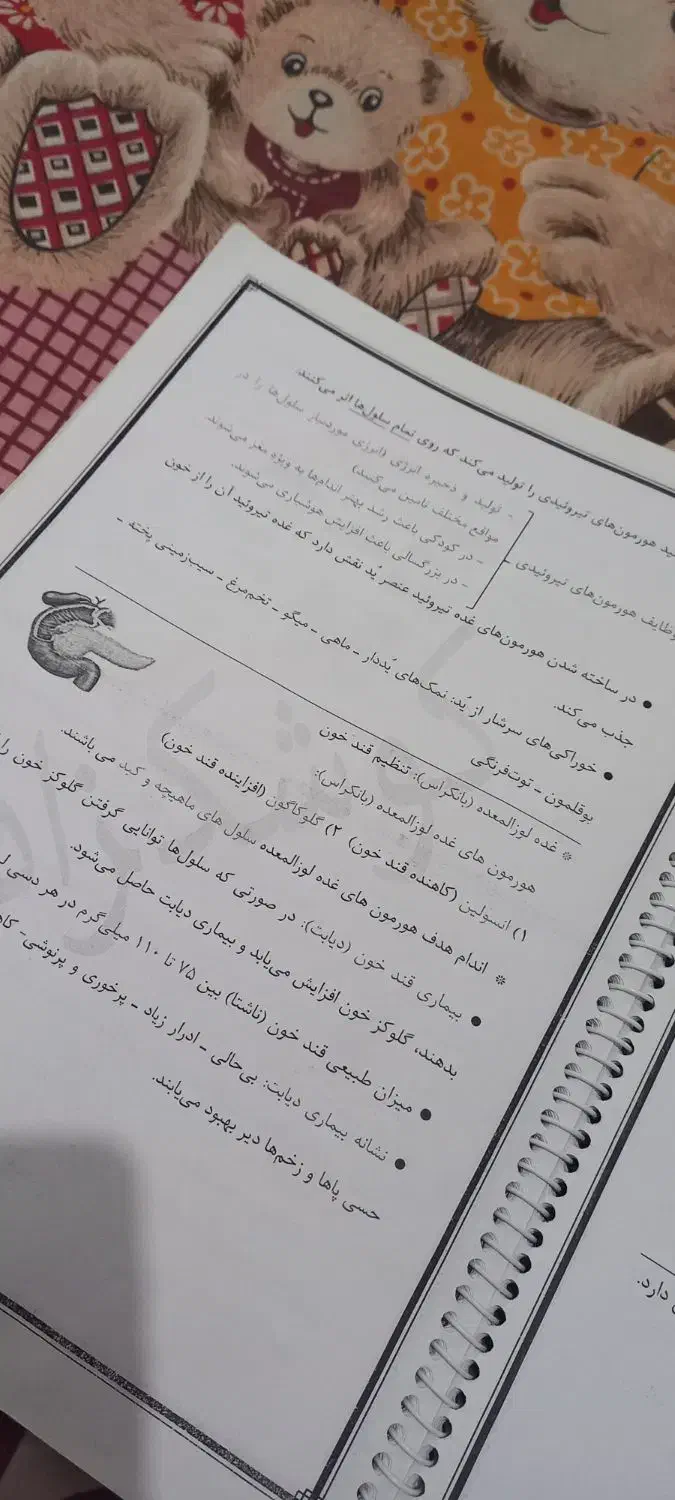 ید هورمون‌های تیروئیدی را تولید می‌کند که روی تمام سلول‌ها اثر می‌کنند.
- تولید و ذخیره انرژی (انرژی موردنیاز سلول‌ها را در
مواقع مختلف تامین می‌کنند)
وظایف هورمون‌های تیروئیدی
- در کودکی باعث رشد بهتر اندام‌ها به ویژه مغز می‌شوند.
- در بزرگسالی باعث افزایش هوشیاری می‌شوند.
● در ساخته شدن هورمون‌های غده تیروئید عنصر یُد نقش دارد که غده تیروئید آن را از خون
جذب می‌کند.
● خوراکی‌های سرشار از یُد: نمک‌های یُددار - ماهی - میگو - تخم‌مرغ - سیب‌زمینی پخته -
بوقلمون - توت‌فرنگی
* غده لوزالمعده (پانکراس): تنظیم قند خون
هورمون های غده لوزالمعده (پانکراس):
۱) انسولین (کاهنده قند خون) ۲) گلوکاگون (افزاینده قند خون)
* اندام هدف هورمون های غده لوزالمعده سلول های ماهیچه و کبد می باشند.
● بیماری قند خون (دیابت): در صورتی که سلول‌ها توانایی گرفتن گلوکز خون را
بدهند، گلوکز خون افزایش می‌یابد و بیماری دیابت حاصل می‌شود.
● میزان طبیعی قند خون (ناشتا) بین ۷۵ تا ۱۱۰ میلی‌گرم در هر دسی
● نشانه بیماری دیابت: بی‌حالی - ادرار زیاد - پرخوری و پرنوشی-
حسی پاها و زخم‌ها دیر بهبود می‌یابند.
دارد.